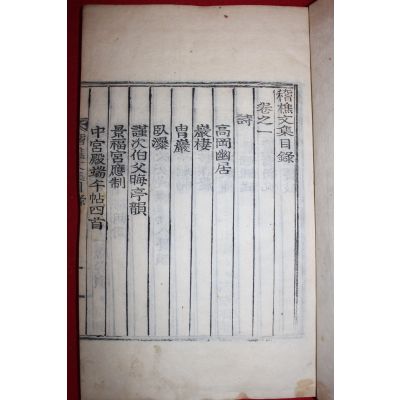 稽樵文集目錄
卷之一
詩
高岡幽居
巖棲
冑巖
臥瀑
謹次伯父晦亭韻
景福宮應制
中宮殿端午帖四首